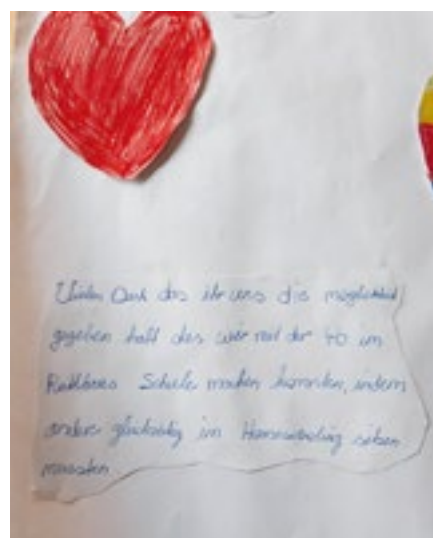 Vielen Dank das ihr uns die möglichkeit
gegeben habt das wir mit der 4D im
Schule machen konnten, indem
andere gleichzeitig im Homeschooling sitzen
mussten